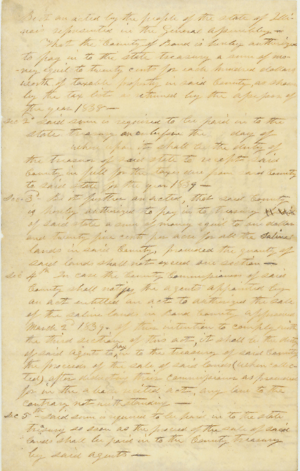 Be it enacted by the people of the state of Illi
nois represented in the General Assembly—
That the County of Bond is hereby authorized
to pay in to the state treasury a sum of mo
ney equal to twenty cents for each hundred dollars
worth of taxable property in said County, as shown
by the tax list as returned by the assessor of
the year 1838—
Sec 2d Said sum is required to be paid in to the
state treasury on or before the day of
when it shall be the duty of
the treasurer of said state to receipt said
County in full for the taxes due from said County
to said state for the year 1839—
Sec 3d Be it further enacted, that said County
is hereby authorized to pay in to treasury
of said state a sum of money equal to one dollar
and twenty five cents an acre for all the saline
lands in said County, provided the quantity of
said lands shall not exceed one section—
Sec 4th In case the County Commissioners of said
County shall notify the agent appointed by
an act entitled an act to authorize the sale
of the saline lands in Bond County, approved
March 2d 1839, of their intention to comply with
the third section of this act, it shall be the duty
of said agent to pay in to the treasury of said County
the proceeds of the sale of said lands (when collec
ted), after deducting his compensation as provided
for in the above recited act, any law to the
contrary notwithstanding—
Sec 5th Said sum is required to be paid in to the state
treasury so soon as the proceeds of the sale of said
lands shall be paid in to the County treasury
by said agent—